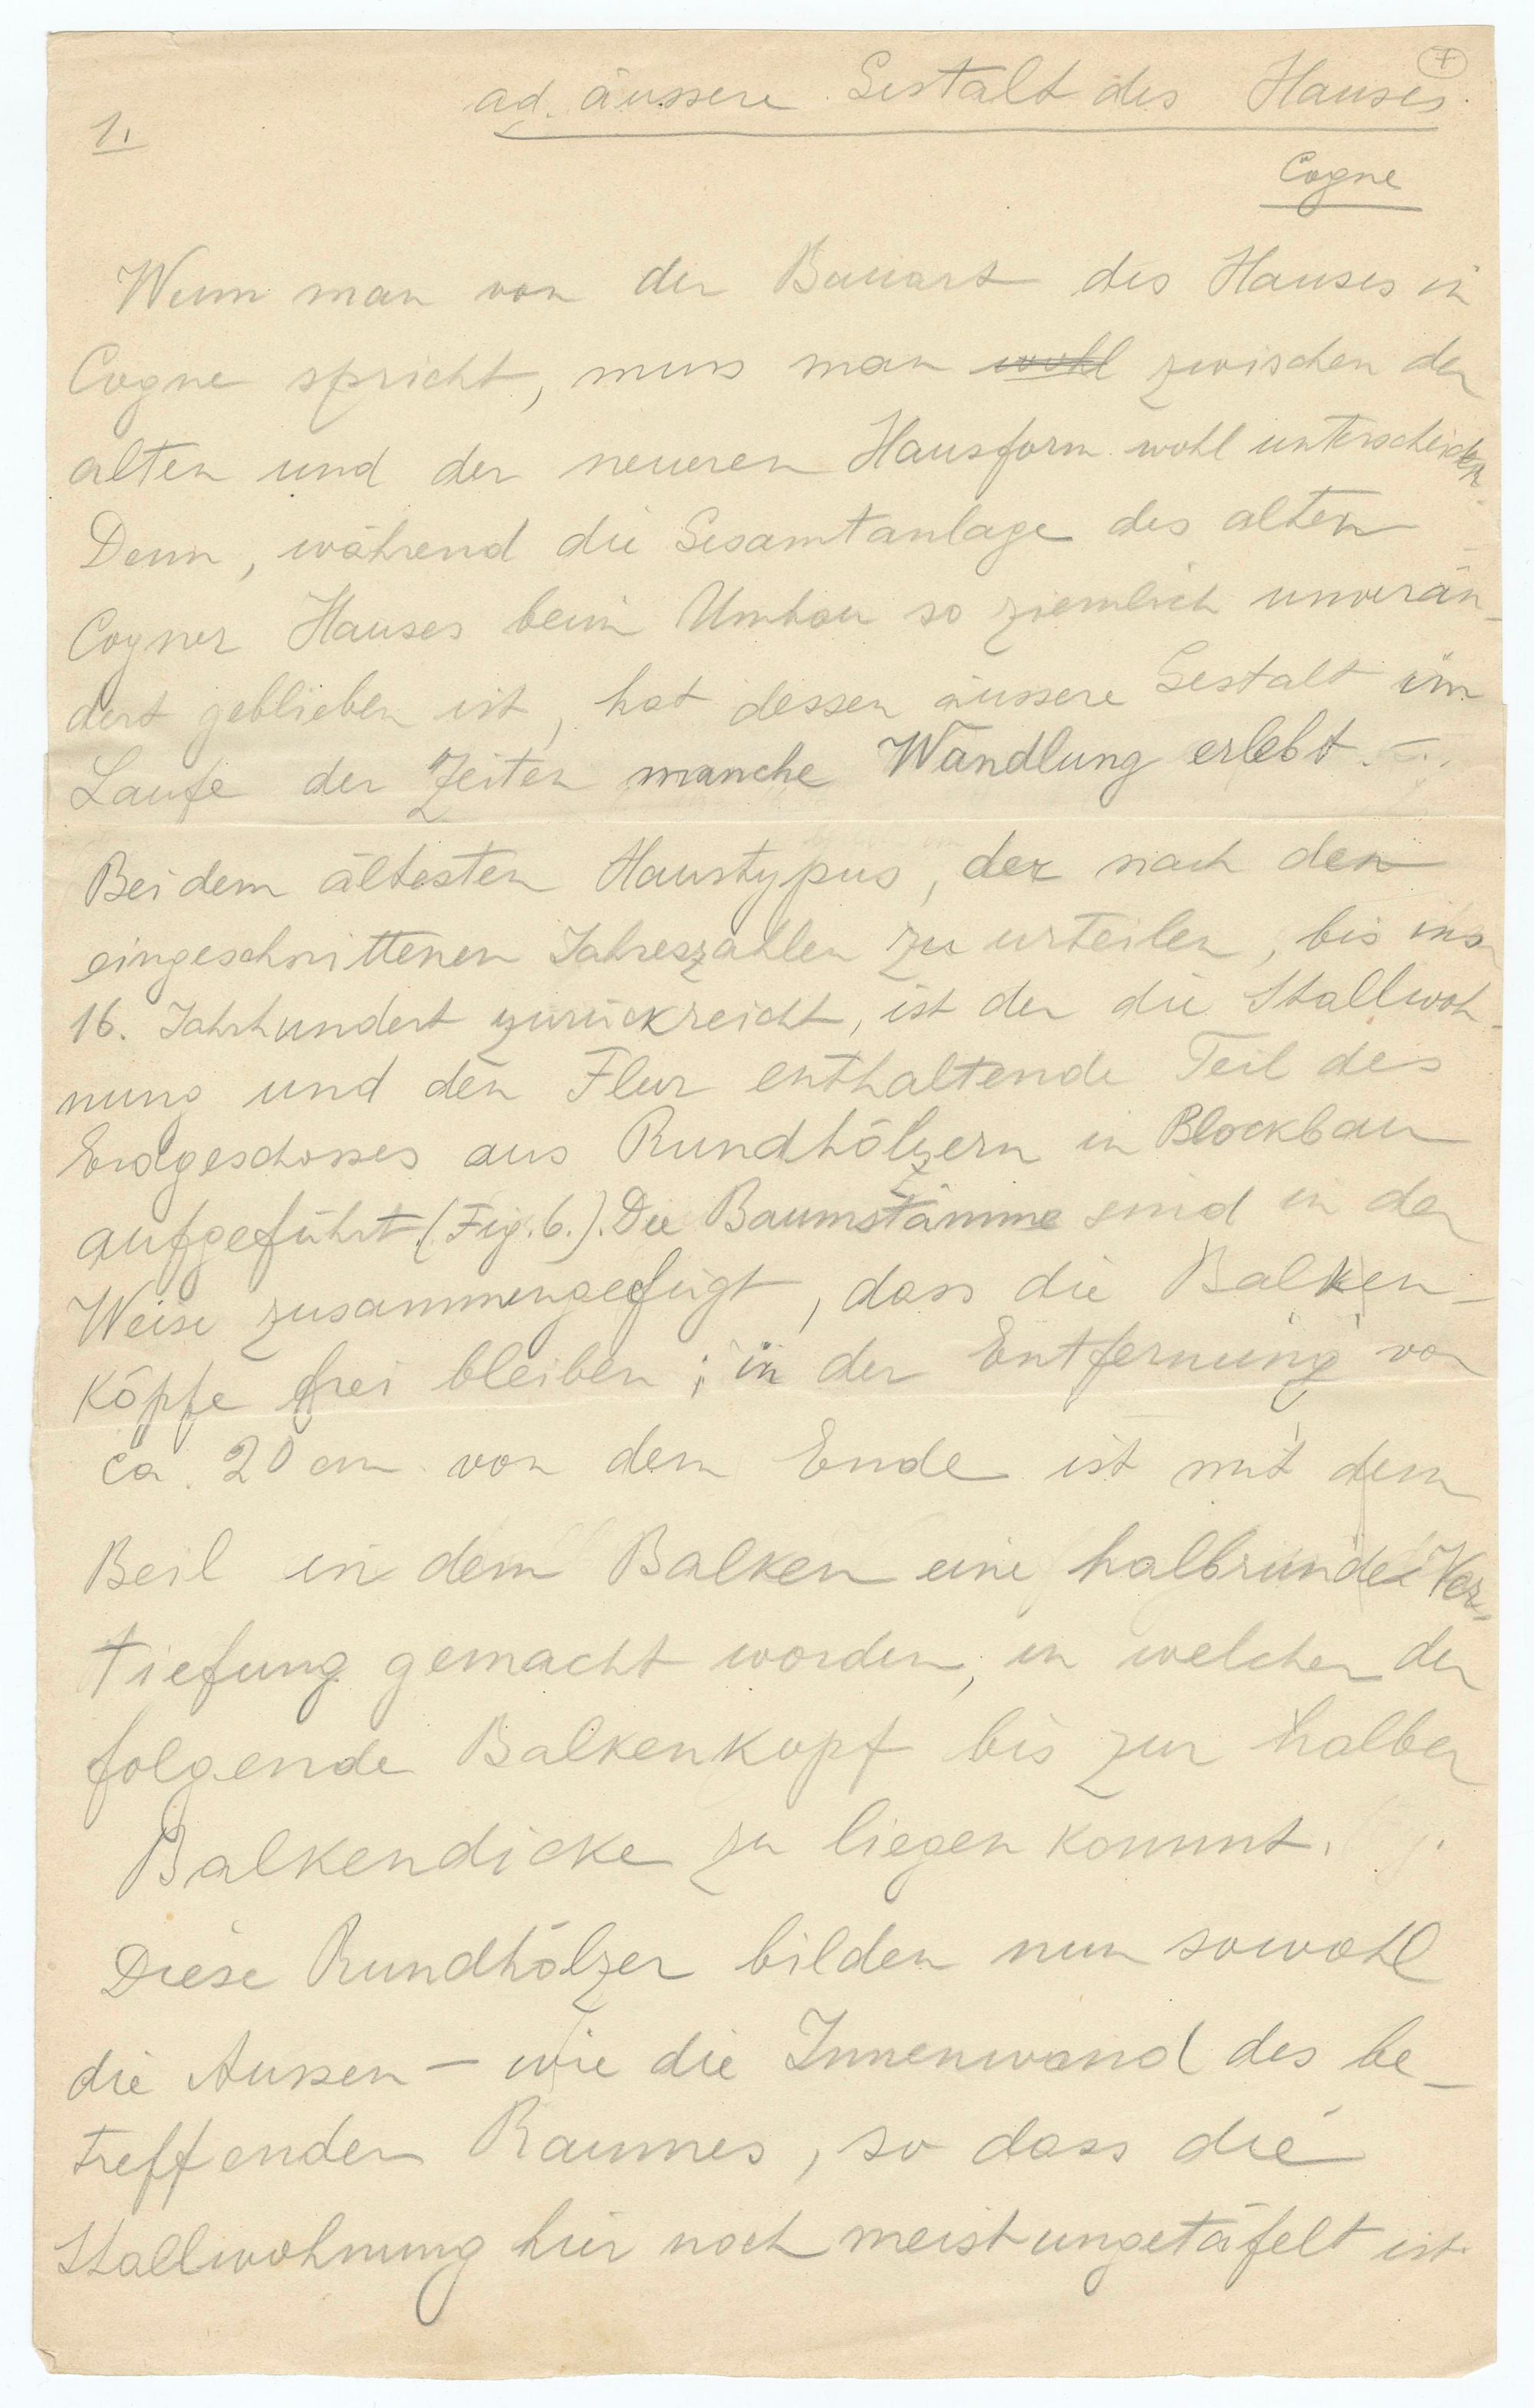 7
ad. äussere Gestalt des Hauses.
1.
Cogne
Wenn man von der Bauart des Hauses in
Cogne spricht, muss man wohl zwischen der
alten und der neueren Hausform wohl unterscheiden.
Denn, während die Gesamtanlage des alten
Cogner Hauses beim Umbau so ziemlich unverän-
dert geblieben ist, hat dessen äussere Gestalt im
Laufe der Zeiten manche Wandlung erlebt. –
Bei dem ältesten Haustypus, der nach den
eingeschnittenen Jahreszahlen zu urteilen, bis ins
16. Jahrhundert zurückreicht, ist der die Stallwoh-
nung und den Flur enthaltende Teil des
Erdgeschosses aus Rundhölzern in Blockbau
aufgeführt. (Fig. 6.). Die Baumstämme sind in der
Weise zusammengefügt, dass die Balken-
köpfe frei bleiben; in der Entfernung von
ca. 20 cm von dem Ende ist mit dem
Beil in dem Balken eine halbrunde Ver-
tiefung gemacht worden, in welcher der
folgende Balkenkopf bis zur halben
Balkendicke zu liegen kommt.
Diese Rundhölzer bilden nun sowohl
die Aussen- wie die Innenwand des be-
treffenden Raumes, so dass die
Stallwohnung hier noch meist ungetäfelt ist.